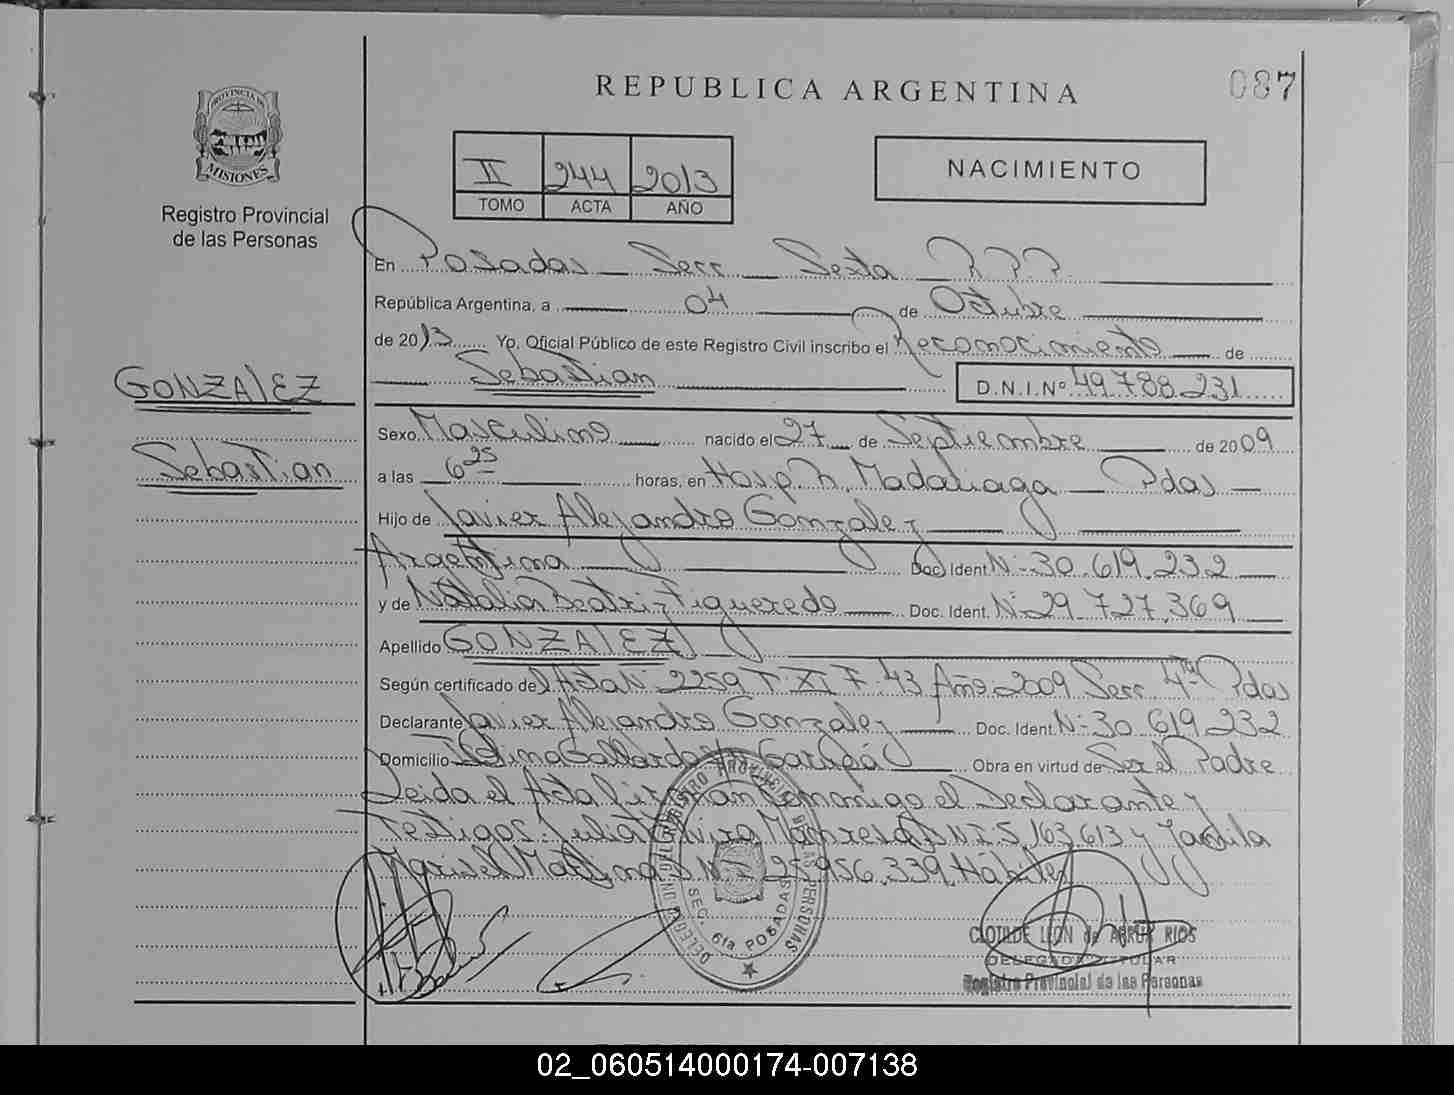 REPUBLICA ARGENTINA
087
PROVINCIA DE
MISIONES
Registro Provincial
de las Personas
II 244 2013
TOMO ACTA AÑO
NACIMIENTO
En Posadas Secc Sexta
República Argentina, a 04 de Octubre
de 2013 Yo, Oficial Público de este Registro Civil inscribo el Reconocimiento de
Sebastian D.N.I.Nº 49.788.231
GONZALEZ
Sebastian
Sexo Masculino nacido el 27 de Septiembre de 2009
a las 6 25 horas, en Hosp. R. Madariaga Pdas
Hijo de Javier Alejandro Gonzalez
Argentina Doc. Ident. Nº 30.619.232
y de Natalia Beatriz Figueredo Doc. Ident. Nº 29.727.369
Apellido GONZALEZ
Según certificado de Acta Nº 2259 T XI F 43 Año 2009 Secc 4ta Pdas
Declarante Javier Alejandro Gonzalez Doc. Ident. Nº 30.619.232
Domicilio Gallardo Garupá Obra en virtud de Ser el Padre
Leida el Acta firman conmigo el Declarante y
Testigos: Julia D.N.I. 5.163.613 y
Marisel Martina D.N.I. 25.956.339 Hábiles
DELEG. REGISTRO PROVINCIAL DE LAS PERSONAS
SEC. 6ta POSADAS
CLOTILDE LEON de ABRUR RIOS
DELEGADA TITULAR
Registro Provincial de las Personas
02_060514000174-007138